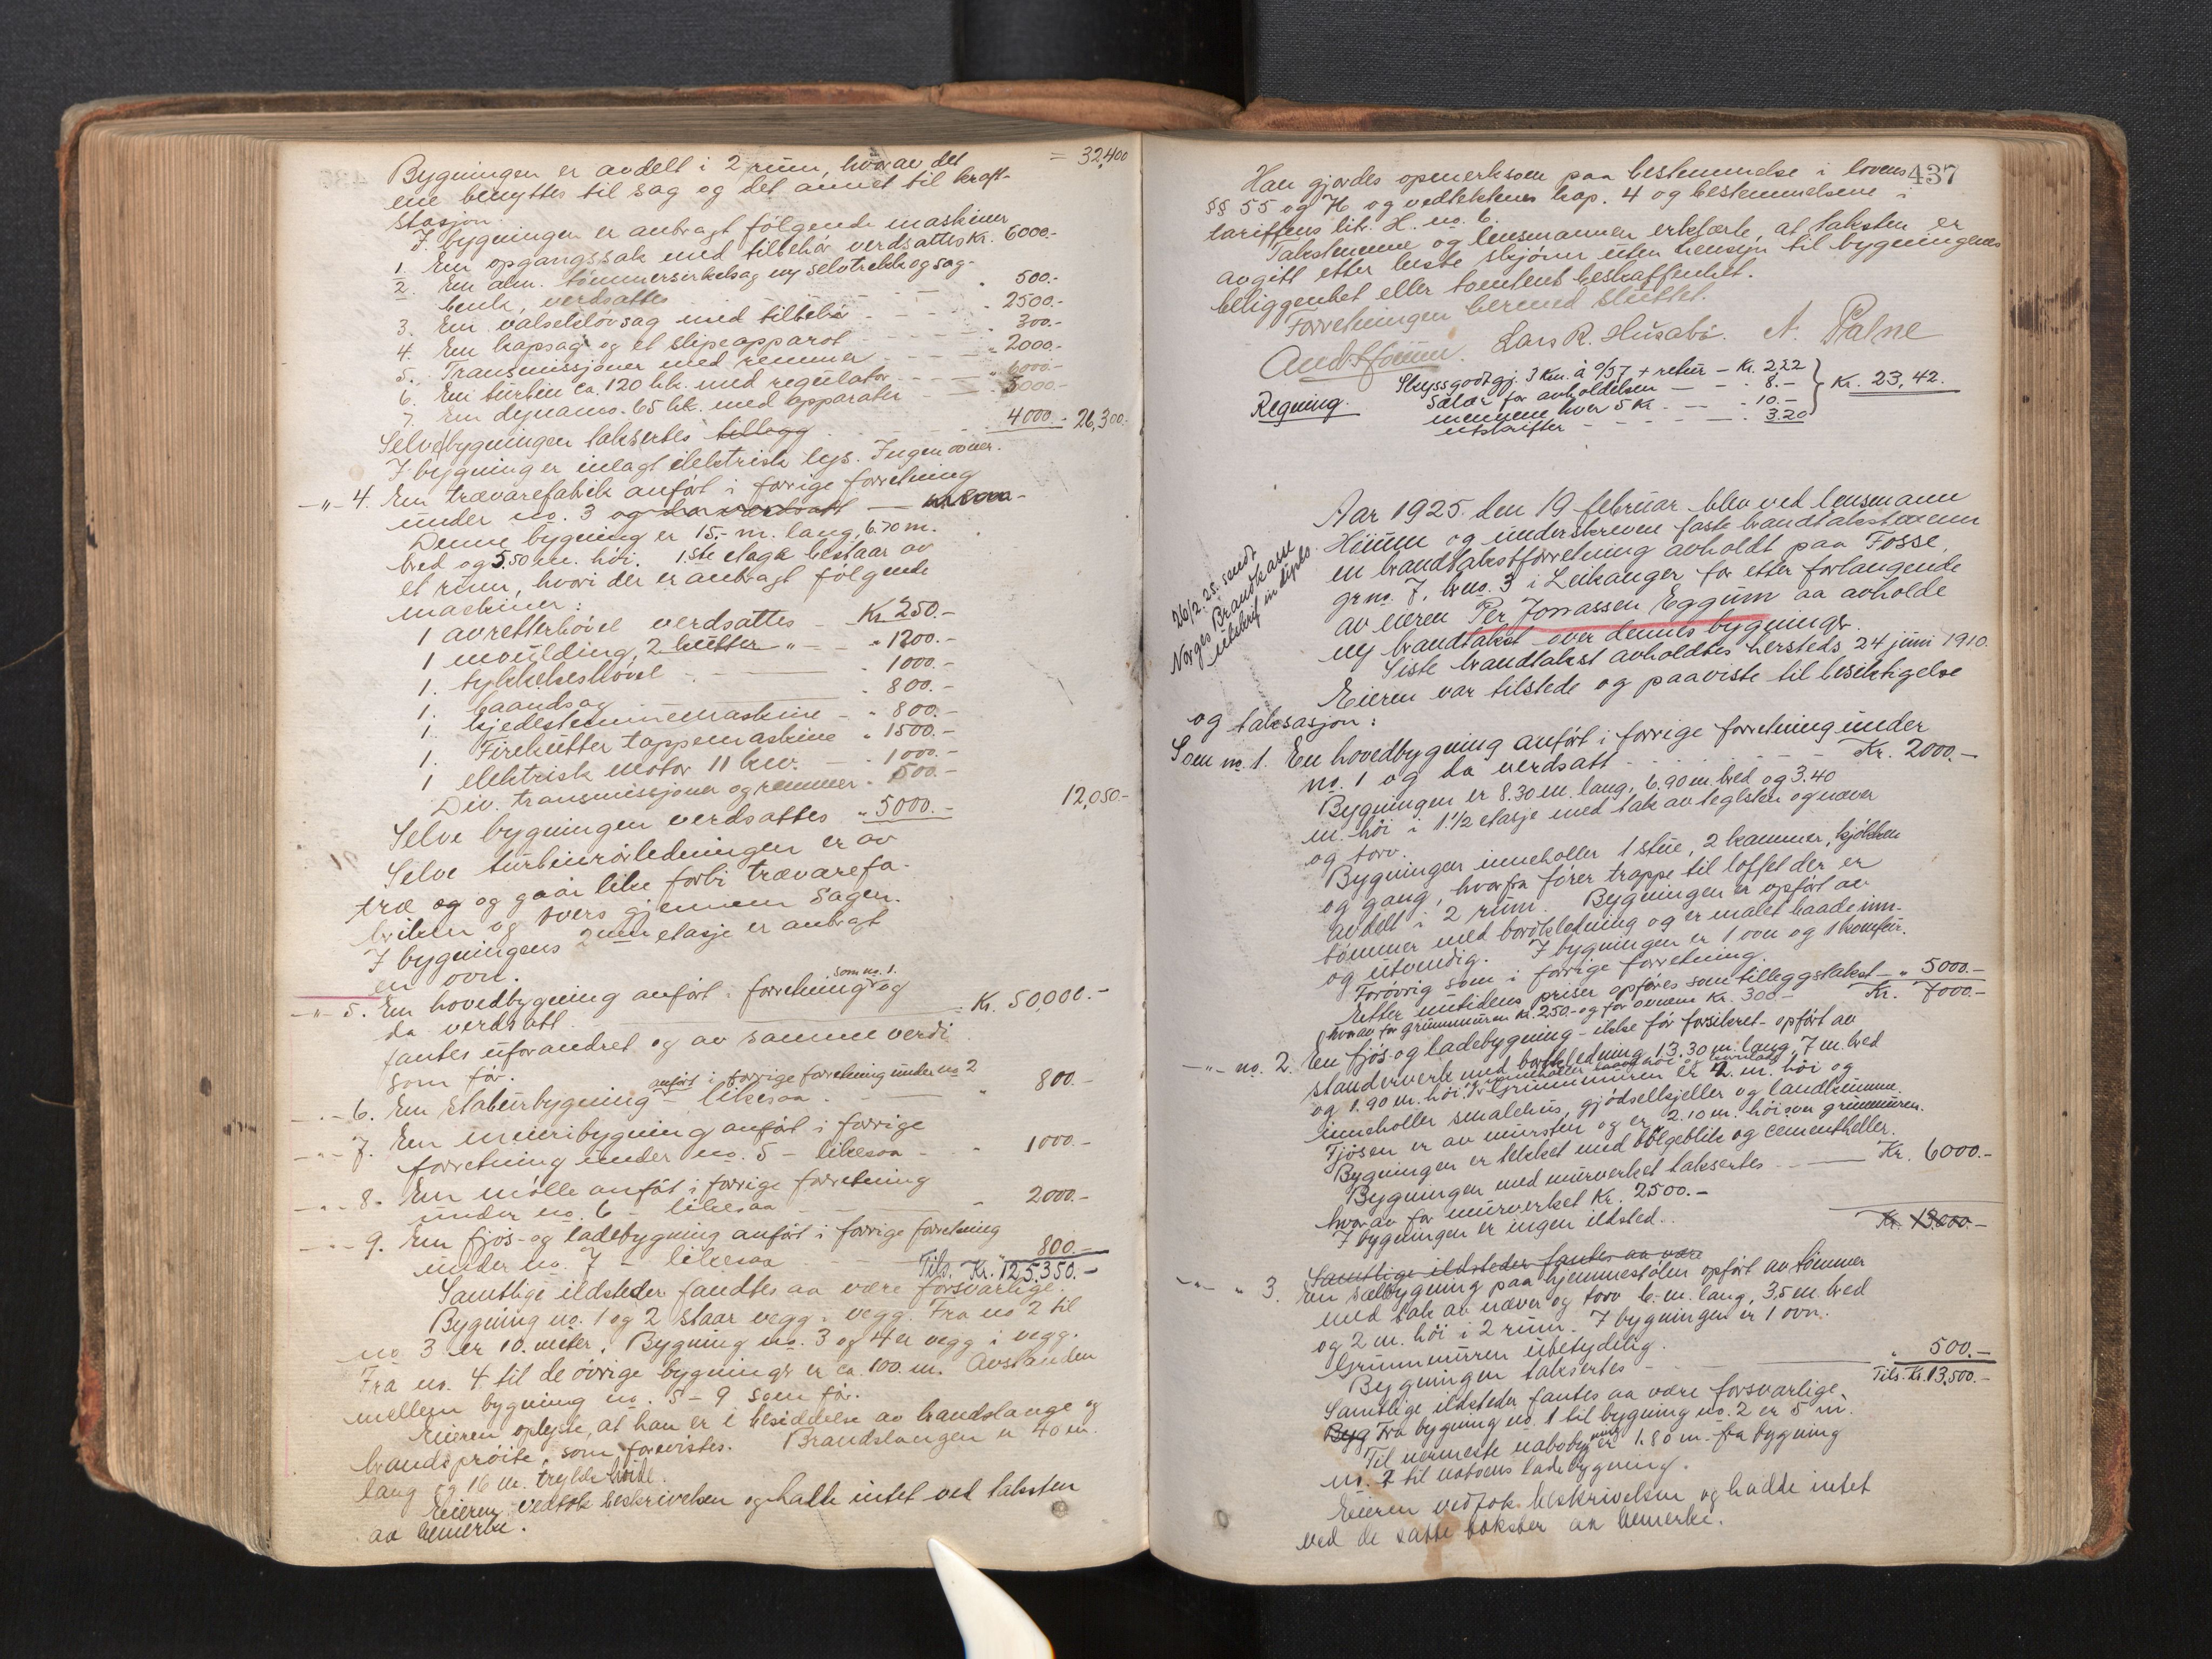 Bygningen er avdelt i 2 rum, hvorav det = 32,400
ene benyttes til sag og det annet til kraft-
stasjon.
I bygningen er anbragt følgende maskiner
1. En opgangssak med tilbehør verdsattes Kr. 6000.-
2. En alm. tømmersirkelsag my selvtrekk og sag-
benk, verdsattes - - - " 500.-
3. En valsekløvsag med tilbehør - - - " 2500.-
4. En kapsag og et slipeapparat - - - " 300.-
5. Transmissjoner med remmer - - - " 2000.-
6. En turbin ca. 120 hk. med regulator - - " 6000.-
7. En dynamo. 65 hk. med apparater - - " 5000.-
Selve bygningen taksertes tillegg - - " 4000.- 26,300.-
I bygning er inlagt elektrisk lys. Ingen ovner.
-"- 4. En trævarefabrik anført i forrige forretning
under no. 3 og da verdsatt - Kr. 8000.-
Denne bygning er 15,- m. lang, 6.70 m.
bred og 5.50 m. høi. 1ste etage bestaar av
et rum, hvori der er anbragt følgende
maskiner:
1 avretterhøvel verdsattes - Kr. 250.-
1 moulding, 2 kutter " - - " 1200.-
1. tykkelseshøvel - - " 1000.-
1. baandsag - " 800.-
1. kjedestemmemaskine - " 800.-
1. Firekutter tappemaskine " 1500.-
1 elektrisk motor 11 kw. - " 1000.-
Div. transmissjoner og remmer - " 500.-
Selve bygningen verdsattes " 5000.- 12,050.-
Selve turbinrørledningen er av
træ og og gaar like forbi trævarefa-
briken og tvers gjennem Sagen.
I bygningens 2nen etasje er anbragt
en ovn.
-"- 5. En hovedbygning anført i forretning som no. 1. og
da verdsatt - - = Kr. 50,000.-
fantes uforandret og av samme verdi
som før.
-"- 6. En Staburbygning - anført i forrige forretning under no 2
likesaa - " 800.-
-"- 7. En meieribygning anført i forrige
forretning under no. 5 - likesaa - - " 1000.-
-"- 8. En mølle anført i forrige forretning
under no. 6 - likesaa - - " 2000.-
-"- 9. En fjøs- og ladebygning anført i forrige forretning
under no. 7 - likesaa - - " 800.-
Tils. Kr. 125,350.-
Samtlige ildsteder fandtes aa være forsvarlige.
Bygning no. 1 og 2 staar vegg i vegg. Fra no 2 til
no. 3 er 10. meter. Bygning no. 3 og 4 er vegg i vegg.
Fra no. 4 til de øvrige bygninger er ca. 100. m. Avstanden
mellem bygning no. 5 - 9 som før.
Eieren oplyste, at han er i besiddelse av brandslange og
brandsprøite, som forevistes. Brandslangen er 40 m.
lang og 16 m. trykkhøide.
Eieren vedtok beskrivelsen og hadde intet ved taksten
aa bemerke.
437
Han gjordes opmerksom paa bestemmelse i lovens
§§ 55 og 76 og vedtektenes kap. 4 og bestemmelsene i
tariffens lit. H. no. 6.
Takstmenne og lensmannen erklærte, at taksten er
avgitt etter beste skjønn uten hensyn til bygningenes
beliggenhet eller tomtens beskaffenhet.
Forretningen hermed sluttet.
And. Høium. Lars R. Husabø. A. Palne
Regning. Skyssgodtgj. 3 Km. à 0/37 + retur - Kr. 2,22
Salær for avholdelsen - - " 8.-
mennene hver 5 Kr. - - " 10.-
utskrifter - - - " 3.20
Kr. 23,42.
26/2. 25. sendt
Norges Brandkasse
utskrift in duplo.
Aar 1925. den 19 februar blev ved lensmann
Høium og underskrevne faste brandtakstmenn
en brandtakstforretning avholdt paa Fosse,
gr no. 7, br no. 3 i Leikanger for etter forlangende
av eieren Per Jonassen Eggum aa avholde
ny brandtakst over dennes bygninger.
Siste brandtakst avholdtes hersteds 24 juni 1910.
Eieren var tilstede og paaviste til besiktigelse
og taksasjon:
Som no. 1. En hovedbygning anført i forrige forretning under
no. 1 og da verdsatt - - - Kr. 2000.-
Bygningen er 8.30 m. lang, 6.90 m. bred og 3.40
m. høi i 1 1/2 etasje med tak av teglsten og næver
og torv.
Bygningen inneholler 1 stue, 2 kammer, kjøkken
og gang, hvorfra fører trappe til loftet der er
avdelt i 2 rum. Bygningen er opført av
tømmer med bordkledning og er malet baade inn-
og utvendig. I bygningen er 1 ovn og 1 komfur.
Forøvrig som i forrige forretning.
Etter nutidens priser opføres som tilleggstakst - " 5000.-
(hvorav for grunnmuren Kr. 250.- og for ovnene Kr. 300.- Kr. 7000.-
-"- no. 2. En fjøs- og ladebygning - ikke før forsikret - opført av
standerverk med bordkledning 13.30 m. lang, 7 m. bred
og 1.90 m. høi. Grunnmuren er 2. m. høi og
inneholler smalehus, gjødselkjeller og landkumme.
Fjøsen er av mursten og er 2.10 m. høi over grunnmuren.
Bygningen er tekket med bølgeblik og cementheller.
Bygningen med murverket taksertes - - Kr. 6000.-
hvorav for murverket Kr. 2500.-
I bygningen er ingen ildsted.
Kr. 13.000.-
Samtlige ildsteder fantes aa være
-"- " 3. En sælbygning paa hjemmestølen opført av tømmer
med tak av næver og torv 6.- m. lang, 3,5 m. bred
og 2 m. høi i 2 rum. I bygningen er 1 ovn.
Grunnmuren ubetydelig.
Bygningen taksertes - - " 500.-
Tils. Kr. 13,500.-
Samtlige ildsteder fantes aa være forsvarlige.
Byg Fra bygning no. 1 til bygning no. 2 er 5 m.
Til nermeste nabobygning er 1.80 m. fra bygning
no. 2 til naboens ladebygning.
Eieren vedtok beskrivelsen og hadde intet
ved de satte takster aa bemerke.